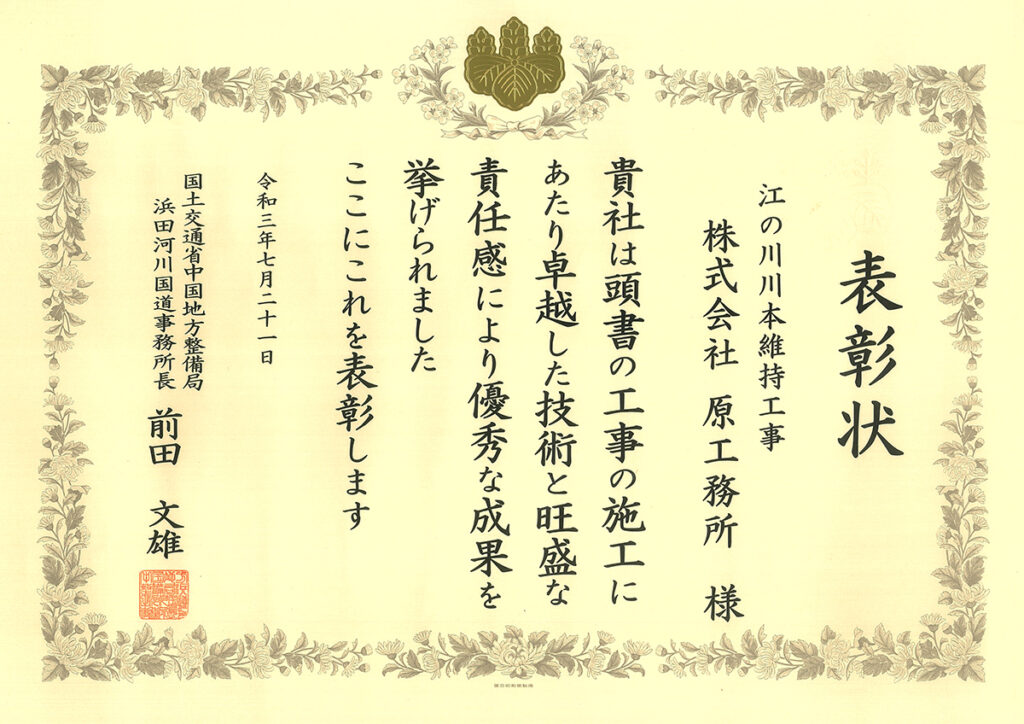 表彰状
江の川川本維持工事
株式会社 原工務所 様
貴社は頭書の工事の施工に
あたり卓越した技術と旺盛な
責任感により優秀な成果を
挙げられました
ここにこれを表彰します
令和三年七月二十一日
国土交通省中国地方整備局
浜田河川国道事務所長 前田 文雄